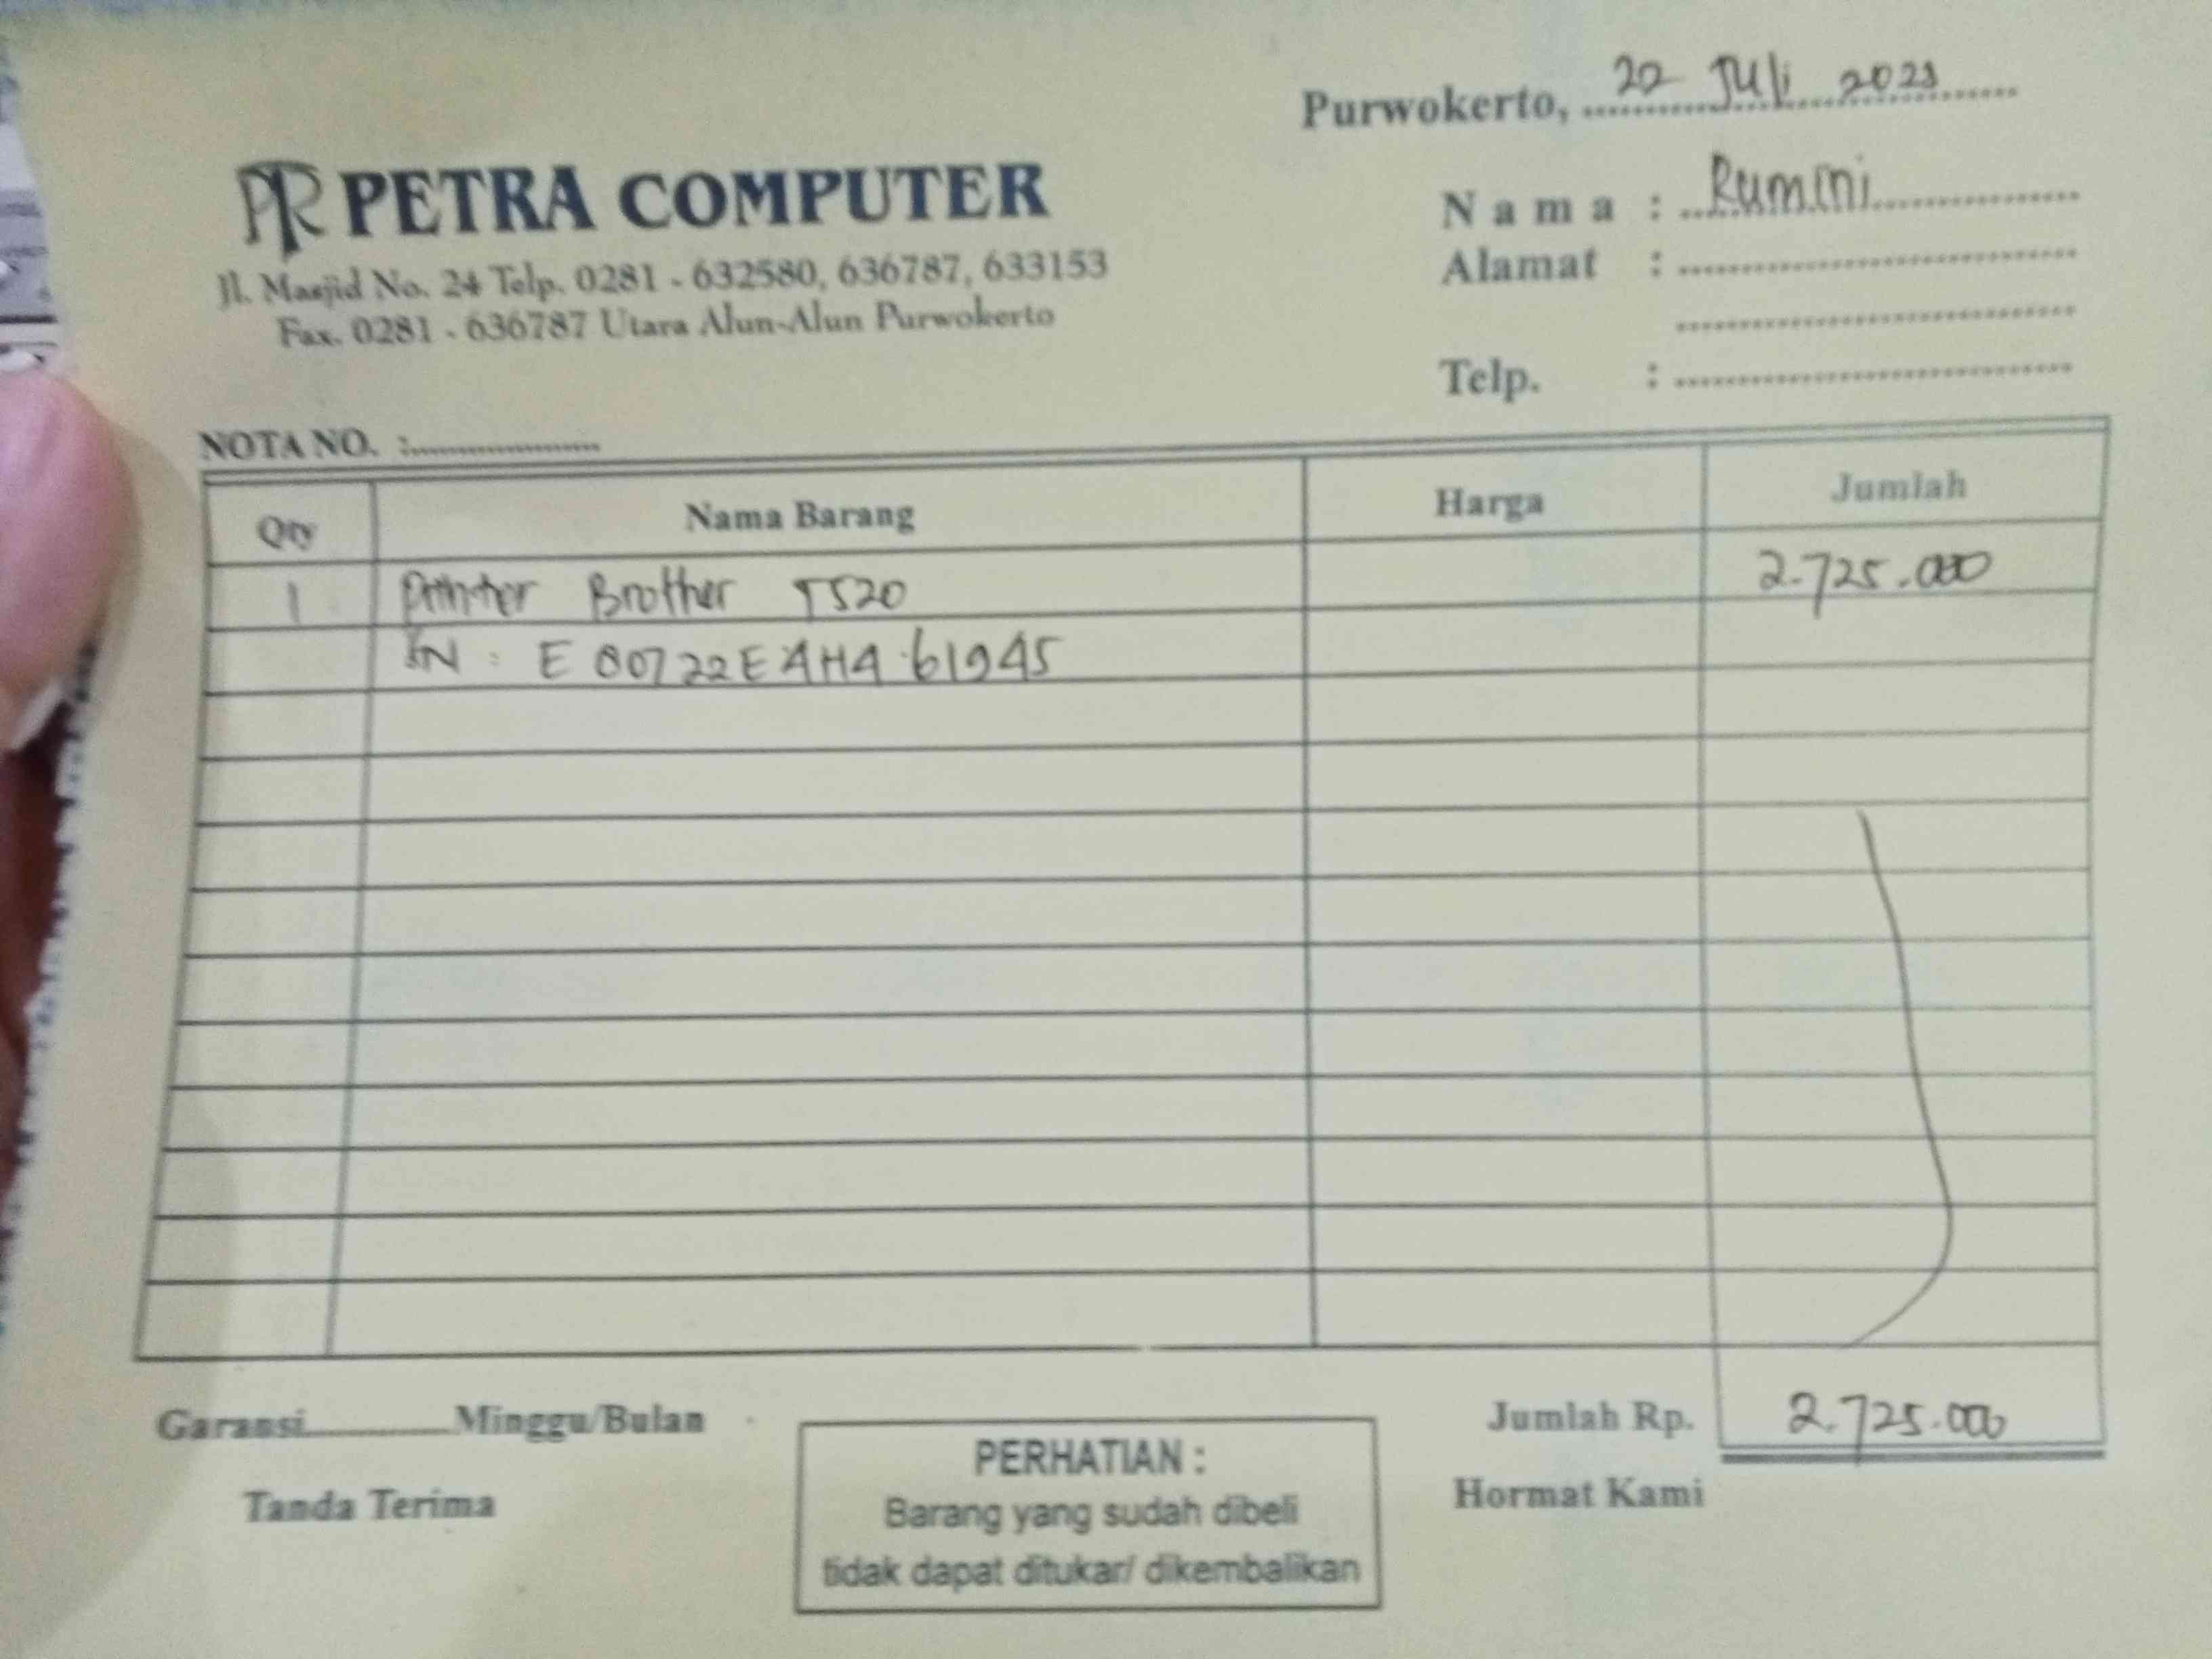 Purwokerto, 22 Juli 2023
PR PETRA COMPUTER
Jl. Masjid No. 24 Telp. 0281 - 632580, 636787, 633153
Fax. 0281 - 636787 Utara Alun-Alun Purwokerto
Nama : Rumini
Alamat :
Telp. :
NOTA NO. :
Qty Nama Barang Harga Jumlah
1 Printer Brother T520 2.725.000
SN : E80722E4H461945
Garansi Minggu/Bulan
Jumlah Rp. 2.725.000
Tanda Terima
Hormat Kami
PERHATIAN :
Barang yang sudah dibeli
tidak dapat ditukar/ dikembalikan